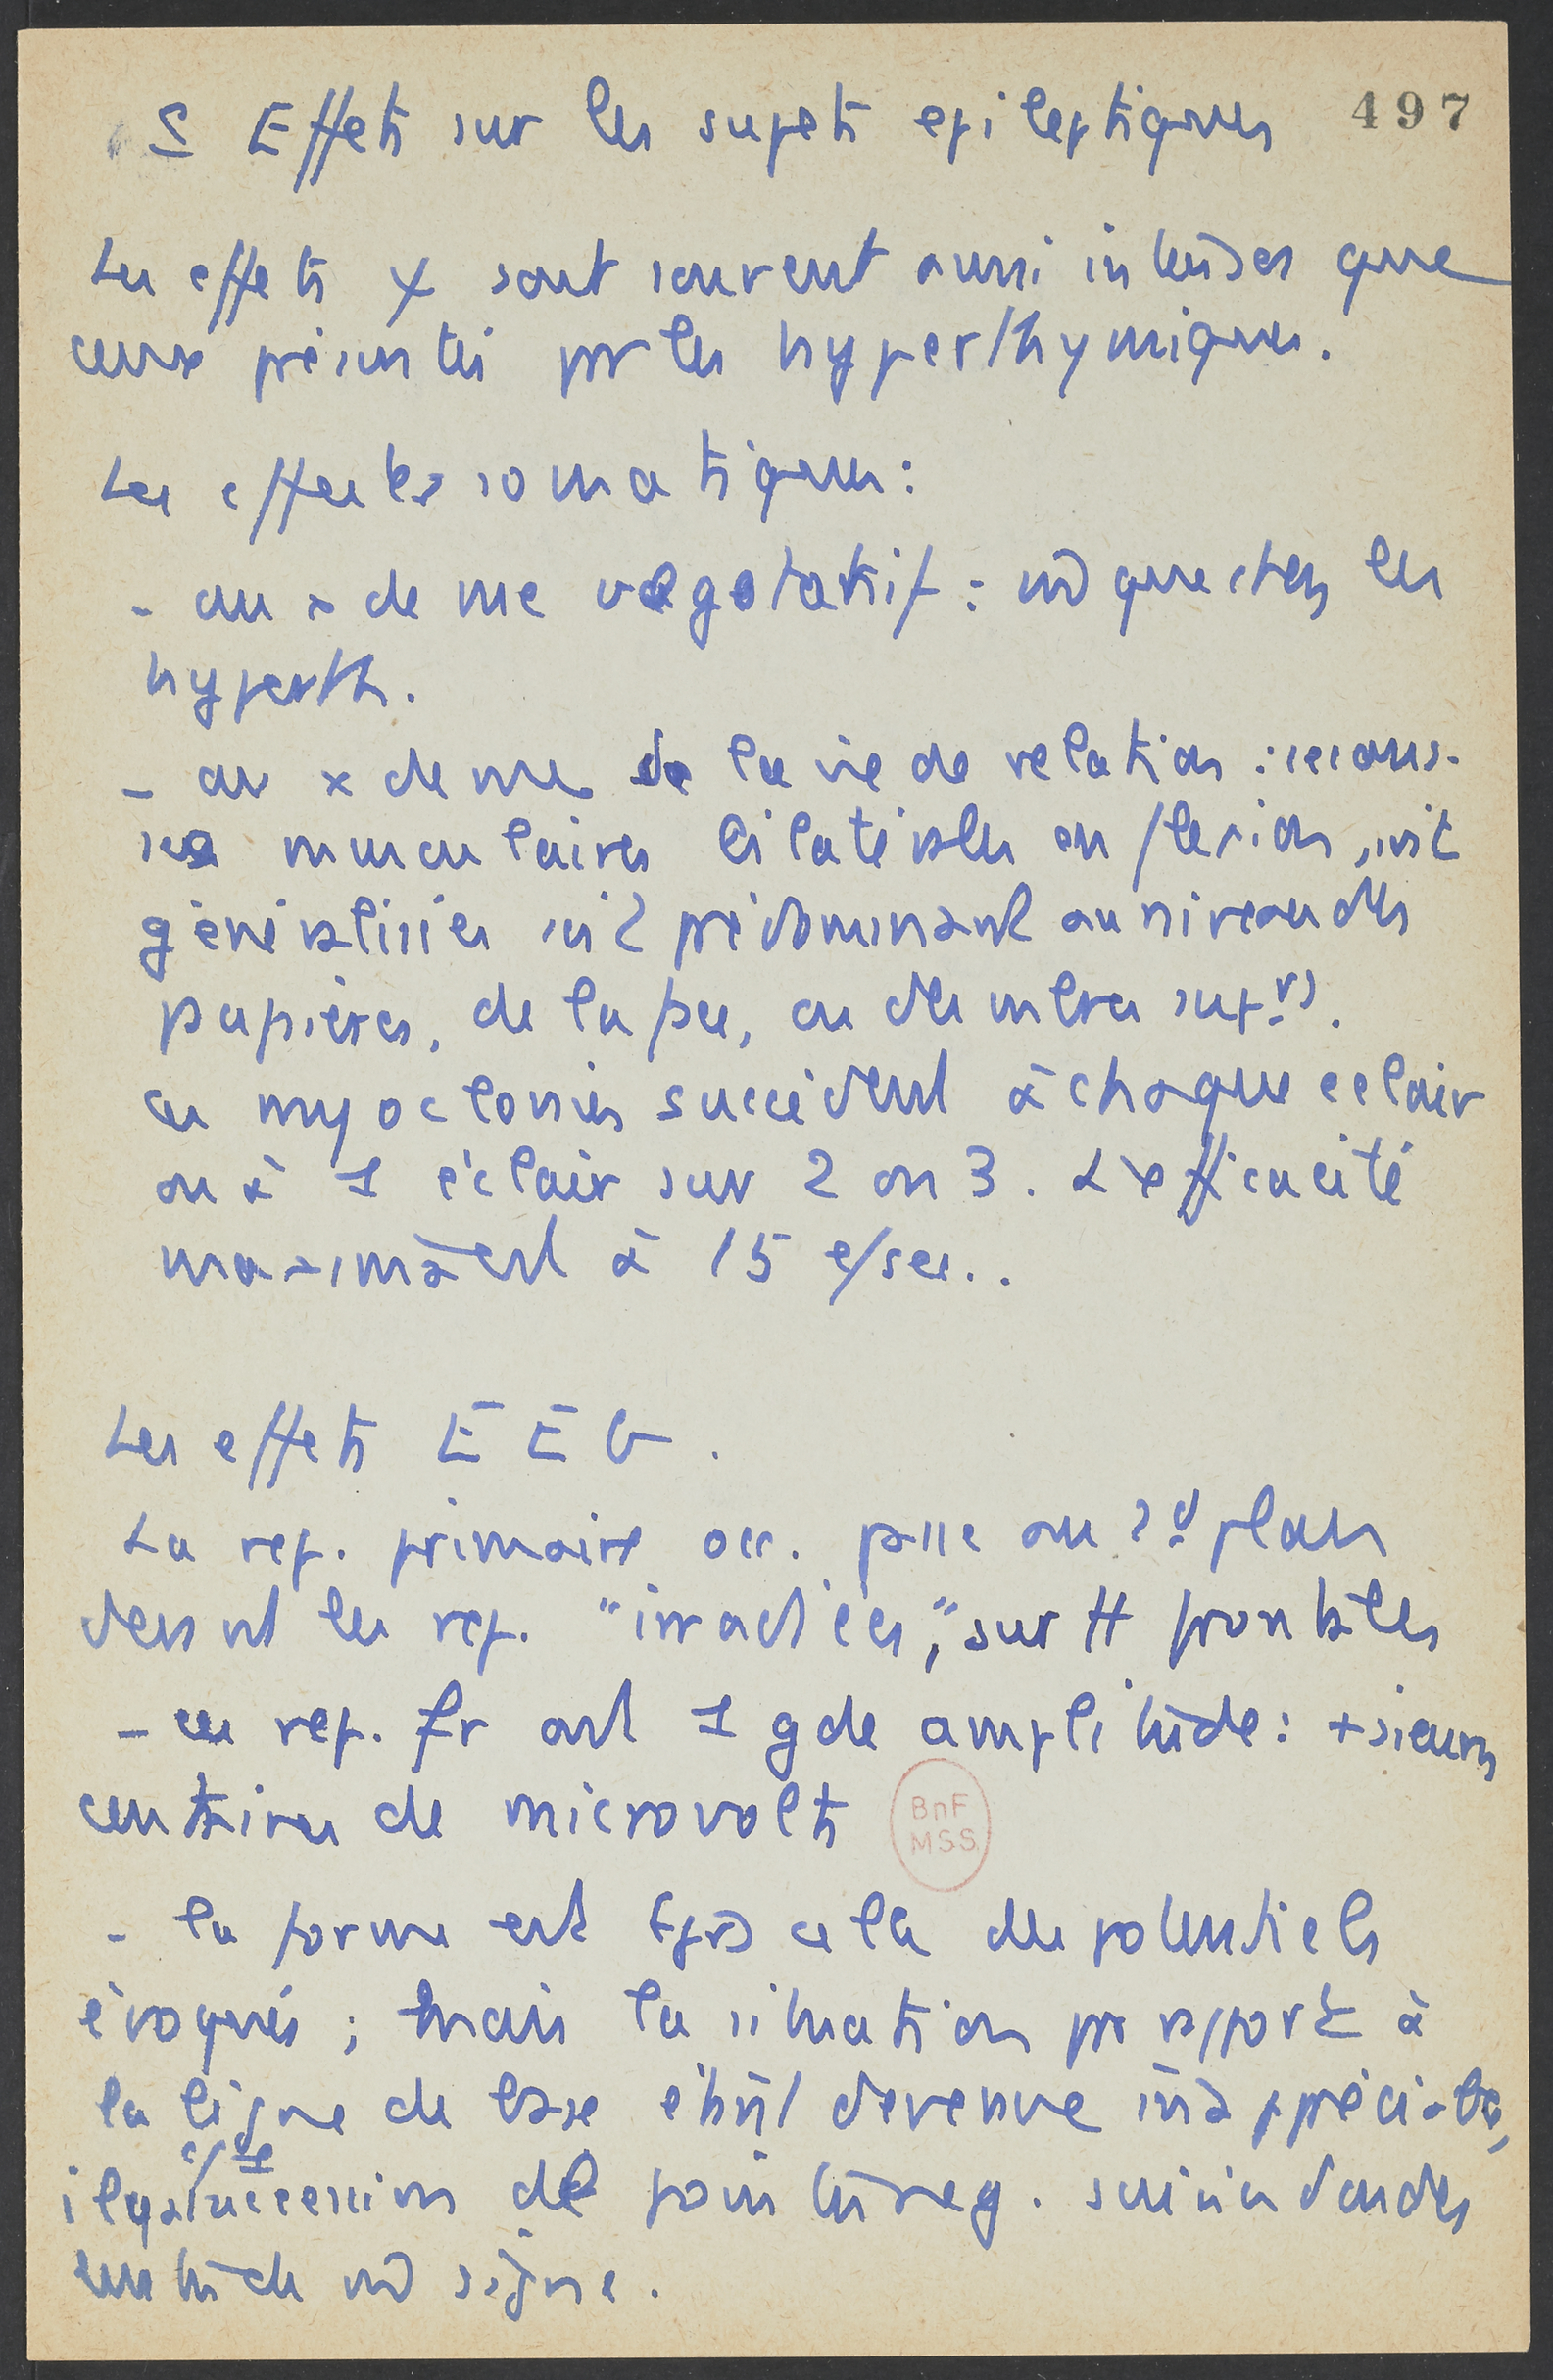 S Effets sur les sujets epileptiques 497
Les effets ψ sont souvent aussi intenses que
ceux présentés par les hyperthymiques.
Les effects somatiques :
- au x de vue vegetatif : md que chez les
hyperth.
- au x de vue de la vie de relation : secous-
ses musculaires bilatérales en flexion, soit
généralisées soit prédominant au niveau des
paupières, de la face, ou des mbres sup.rs.
Ces myoclonies succèdent à chaque eclair
ou à 1 éclair sur 2 ou 3. L'efficacité
maxima est à 15 e/sec..
Les effets EEG.
La rep. primaire occ. passe au 2d plan
devant les rep. "irradiées," sur tt frontales
- ces rep. fr ont 1 gde amplitude : +sieurs
centaines de microvolts
BnF
MSS
- la forme est celle des potentiels
évoqués ; mais la situation par rapport à
la ligne de base étant devenue inappréciable,
il y a succession de pointes neg. suivies d'ondes
lentes de md signe.